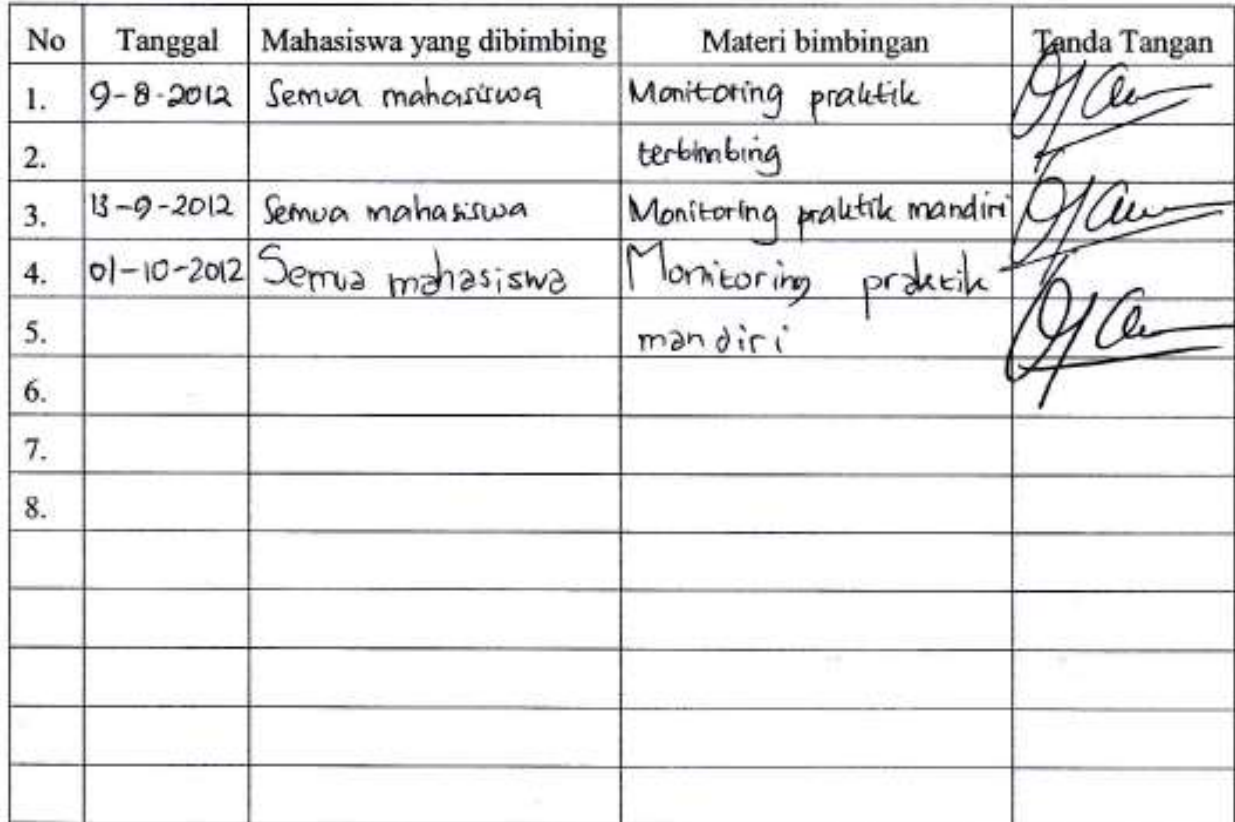 No Tanggal Mahasiswa yang dibimbing Materi bimbingan Tanda Tangan
1. 9-8-2012 Semua mahasiswa Monitoring praktik
2. terbimbing
3. 13-9-2012 Semua mahasiswa Monitoring praktik mandiri
4. 01-10-2012 Semua mahasiswa Monitoring praktik
5. mandiri
6.
7.
8.